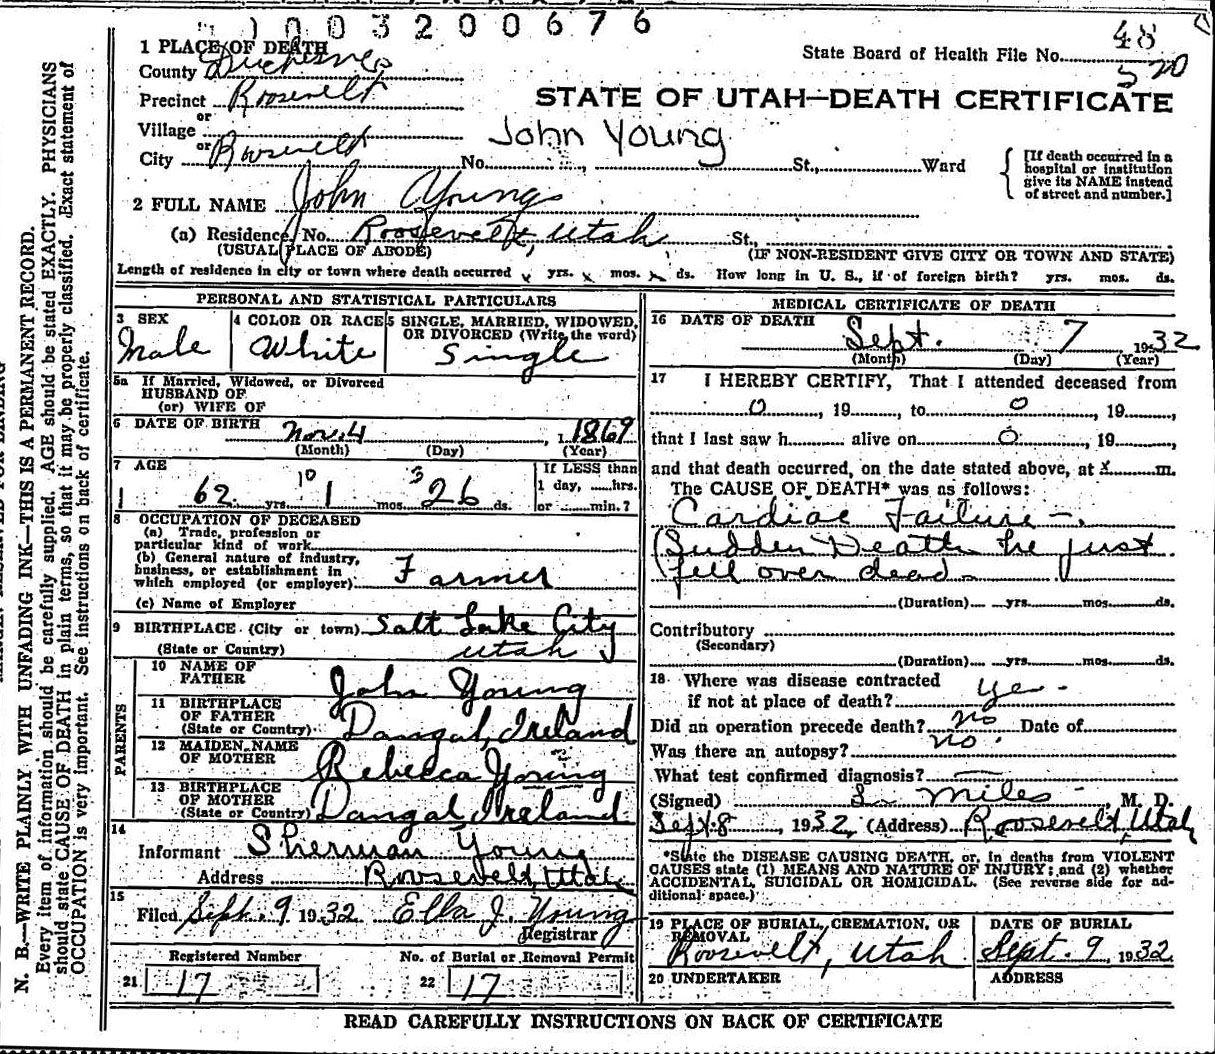 1003200676
48
520
1 PLACE OF DEATH
County Duchesne
State Board of Health File No.
Precinct Roosevelt
STATE OF UTAH—DEATH CERTIFICATE
or
Village
John Young
or
City Roosevelt No. St., Ward
[If death occurred in a hospital or institution give its NAME instead of street and number.]
2 FULL NAME John Young
(a) Residence, No. Roosevelt, Utah St.,
(USUAL PLACE OF ABODE) (IF NON-RESIDENT GIVE CITY OR TOWN AND STATE)
Length of residence in city or town where death occurred x yrs. x mos. x ds. How long in U. S., if of foreign birth? yrs. mos. ds.
PERSONAL AND STATISTICAL PARTICULARS
3 SEX
Male
4 COLOR OR RACE
White
5 SINGLE, MARRIED, WIDOWED,
OR DIVORCED (Write the word)
Single
5a If Married, Widowed, or Divorced
HUSBAND OF
(or) WIFE OF
6 DATE OF BIRTH Nov. 4, 1869
(Month) (Day) (Year)
7 AGE
10 3
62 yrs. 1 mos. 26 ds.
If LESS than
1 day, ......hrs.
or ......min.?
8 OCCUPATION OF DECEASED
(a) Trade, profession or
particular kind of work
(b) General nature of industry,
business, or establishment in
which employed (or employer) Farmer
(c) Name of Employer
9 BIRTHPLACE (City or town) Salt Lake City
(State or Country) Utah
PARENTS
10 NAME OF
FATHER John Young
11 BIRTHPLACE
OF FATHER
(State or Country) Dangal, Ireland
12 MAIDEN NAME
OF MOTHER Rebecca Young
13 BIRTHPLACE
OF MOTHER
(State or Country) Dangal Ireland
14
Informant Sherman Young
Address Roosevelt, Utah
15
Filed Sept. 9 1932 Ella J. Young
Registrar
Registered Number
21 17
No. of Burial or Removal Permit
22 17
MEDICAL CERTIFICATE OF DEATH
16 DATE OF DEATH Sept. 7 1932
(Month) (Day) (Year)
17 I HEREBY CERTIFY, That I attended deceased from
0, 19......, to 0, 19......,
that I last saw h...... alive on 0, 19......,
and that death occurred, on the date stated above, at x m.
The CAUSE OF DEATH* was as follows:
Cardiac Failure –
(Sudden Death he just
(fell over dead –
(Duration) yrs. mos. ds.
Contributory
(Secondary)
(Duration) yrs. mos. ds.
18 Where was disease contracted
if not at place of death? yes -
Did an operation precede death? no Date of
Was there an autopsy? no.
What test confirmed diagnosis? —
(Signed) Miles M. D.
Sept. 8, 1932, (Address) Roosevelt, Utah
*State the DISEASE CAUSING DEATH, or, in deaths from VIOLENT
CAUSES state (1) MEANS AND NATURE OF INJURY; and (2) whether
ACCIDENTAL, SUICIDAL OR HOMICIDAL. (See reverse side for ad-
ditional space.)
19 PLACE OF BURIAL, CREMATION, OR
REMOVAL
Roosevelt, Utah
DATE OF BURIAL
Sept. 9, 1932
20 UNDERTAKER
ADDRESS
READ CAREFULLY INSTRUCTIONS ON BACK OF CERTIFICATE
N. B.—WRITE PLAINLY WITH UNFADING INK—THIS IS A PERMANENT RECORD.
Every item of information should be carefully supplied. AGE should be stated EXACTLY. PHYSICIANS
should state CAUSE OF DEATH in plain terms, so that it may be properly classified. Exact statement of
OCCUPATION is very important. See instructions on back of certificate.